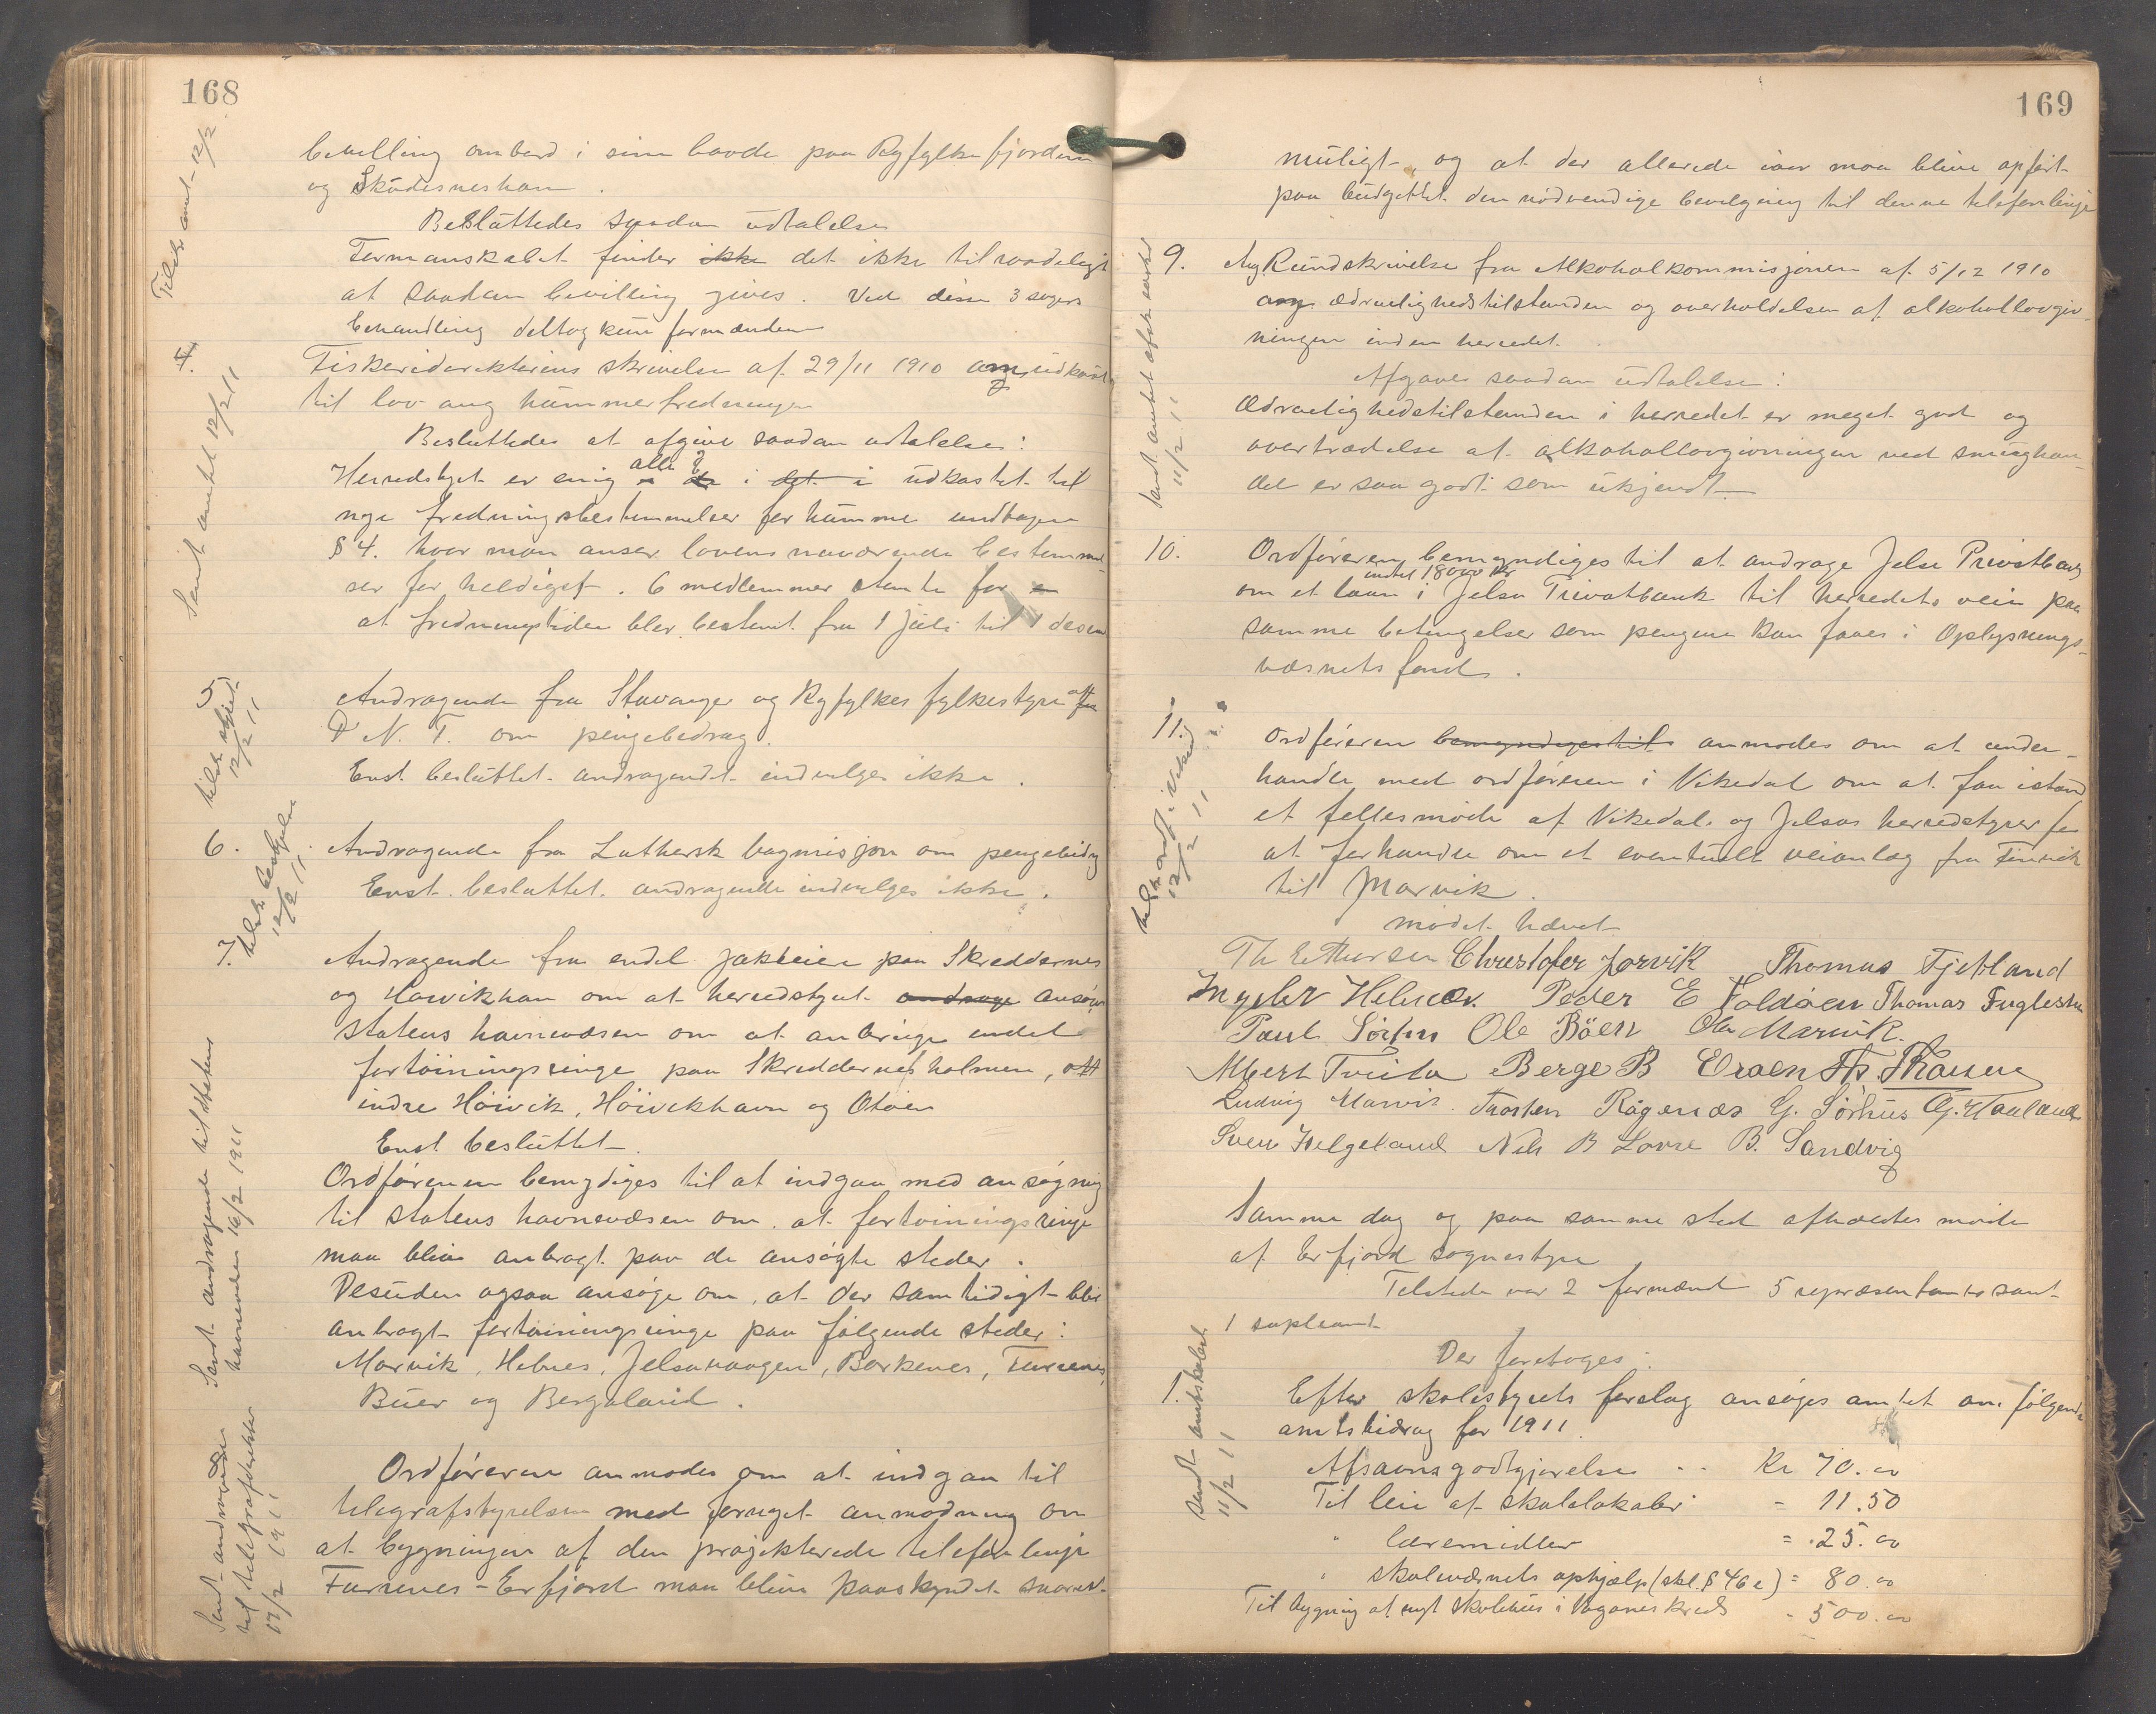 168
bevilling ombord i sine baade paa Ryfylke fjordene
og Skudesneshavn.
Besluttedes saadan udtalelse
Formanskabet finder ikke det ikke tilraadeligt
at saadan bevilling gives. Ved disse 3 sagers
behandling deltog kun formændene
Tilsk. amt. 12/2
4.
Fiskeridirektørens skrivelse af 29/11 1910 ang. udkast
til lov ang hummerfredningen
Besluttedes at afgive saadan udtalelse:
Herredstyret er enig alle i det i udkastet til
nye fredningsbestemmelser for humme undtagen
§ 4. hvor man anser lovens nuværende bestemmel-
ser for heldigst. 6 medlemmer stemte for
at fredningstiden blev bestemt fra 1 juli til 1 desem
Sendt amtet 12/2 11
5
Andragende fra Stavanger og Ryfylkes fylkestyre af
D N. T. om pengebedrag.
Enst. besluttet andragendet indvilges ikke.
tilsk. styret
12/2 11
6.
Andragende fra Luthersk bogmisjon om pengebidrag
Enst. besluttet. andragende indvilges ikke.
tilsk. bestyrelsen
12/2 11
7.
Andragende fra endel jakteiere paa Skreddernes
og Høivikhavn om at herredstyret andrage ansøger
statens havnevæsen om at anbringe endel
fortöiningsringe paa Skreddernesholmen,
indre Höivik, Höivikhavn og Otöien
Enst besluttet.
Ordføreren bemydiges til at indgaa med ansøgning
til statens havnevæsen om. at fortoiningsringe
maa blive anbragt paa de ansøgte steder.
Desuden ogsaa ansøge om, at der samtidigt blir
anbragt fortoiningsringe paa følgende steder:
Marvik, Hebnes, Jelsavaagen, Barkenes, Fureenes,
Buer og Bergeland.
Sendt andragende til statens
havnevæsen 16/2 1911
8
Ordføreren anmodes om at indgaa til
telegrafstyrelsen med fornyet anmodning om
at bygningen af den projekterede telefonlinje
Furrenes - Erfjord maa blive paaskyndet snarest
Sendt andragende
til telegrafdirektør
17/2 1911
169
muligt, og at der allerede iaar maa blive opført
paa budgettet den nødvendige bevilgning til denne telefonlinje
9.
Ang Rundskrivelse fra Alkoholkommisjonen af 5/12 1910
ang. ædruelighedstilstanden og overholdelsen af alkohollovgiv-
ningen inden herredet.
Afgaves saadan udtalelse:
Ædruelighedstilstanden i herredet er meget god og
overtrædelse af alkohollovgivningen ved smughan-
del er saa godt som ukjendt.
11/2 11
10.
Ordføreren bemyndiges til at andrage Jelse Privatbank
indtil 18000 Kr
om et laan i Jelsa Privatbank til herredets veie paa
samme betingelser som pengene kan faaes i Oplysnings-
væsnets fond.
11.
Ordføreren bemyndiges til anmodes om at under-
handle med ordføreren i Vikedal om at faa istand
et fellesmøde af Vikedal. og Jelsas herredstyrer for
at forhandle om et eventuelt veianlæg fra
til Marvik.
mødet hævet
tilsk. ordf. i Vikedal
12/2 11
Christofer Jorvik Thomas Fjetland
Peder E Foldøen Thomas Fuglestein
Paul Sørhus Ole Böen Ole Marvik.
Albert Tveita Berge B Eraen Th. Thorsen
Ludvig Marvik. Thorsten Ragenæs G. Sörhus G. Haaland
Sven Helgeland Nils B Lovra B. Sandvig
Samme dag og paa samme sted afholdtes møde
af Erfjord sognestyre
Tilstede var 2 formænd 5 representanter samt
1 supleant
Der foretoges:
1.
Efter skolestyrets forslag ansøges amtet om følgende
amtsbidrag for 1911.
Afsavnsgodtgjørelse .. Kr 70.00
Til leie af skolelokaler = 11.50
" læremidler = 25.00
" skolevæsnets ophjælp (skl. § 46 e) = 80.00
Til bygning af nyt skolehus i Vaganes kreds - 500.00
Sendt amtskolest.
11/2 11